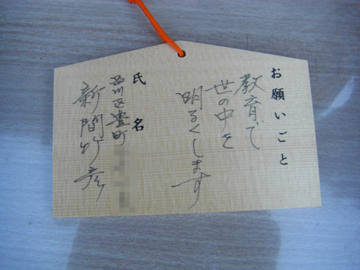 お願いごと
教育で
世の中を
明るくします
氏名
品川区豊町
新間竹彦